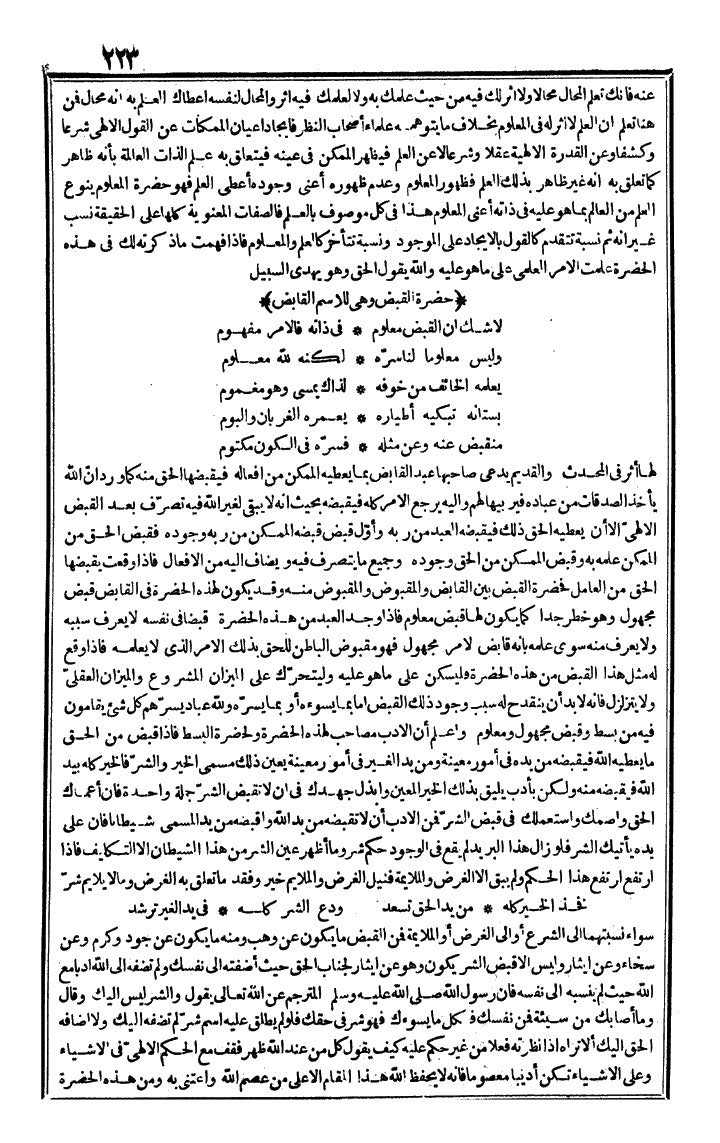 ٢٢٣
عنه فانك تعلم المحال محالا ولا أثر لك فيه من حيث علمك به ولا لعلمك فيه أثر والمحال لنفسه أعطاك العلم به انه محال فمن
هنا تعلم ان العلم لا أثر له في المعلوم بخلاف ما يتوهمه علماء أصحاب النظر فايجاد أعيان الممكنات عن القول الالهي شرعا
وكشفا وعن القدرة الالهية عقلا وشرعا لا عن العلم فيظهر الممكن في عينه فيتعلق به علم الذات العالمة بأنه ظاهر
كما تعلق به انه غير ظاهر بذلك العلم فظهور المعلوم وعدم ظهوره أعني وجوده أعطى العلم فهو حضرة المعلوم ينوع
العلم من العالم بما هو عليه في ذاته أعني المعلوم هذا في كل موصوف بالعلم فالصفات المعنوية كلها على الحقيقة نسب
غير انه ثم نسبة تتقدم كالقول بالايجاد على الموجود ونسبة تتأخر كالعلم والمعلوم فاذا فهمت ما ذكرته لك في هذه
الحضرة علمت الامر العلمي على ما هو عليه والله يقول الحق وهو يهدي السبيل
﴿حضرة القبض وهي للاسم القابض﴾
لا شك ان القبض معلوم * في ذاته فالامر مفهوم
وليس معلوما لنا سرّه * لكنه لله معلوم
يعلمه الخائف من خوفه * لذاك يمسى وهو مغموم
بستانه تبكيه أطياره * يعمره الغربان والبوم
منقبض عنه وعن مثله * فسرّه في الكون مكتوم
لها أثر في المحدث والقديم يدعى صاحبها عبد القابض بما يعطيه الممكن من أفعاله فيقبضها الحق منه كما ورد انّ الله
يأخذ الصدقات من عباده فيربيها لهم واليه يرجع الامر كله فيقبضه بحيث انه لا يبقى لغير الله فيه تصرّف بعد القبض
الالهيّ الا أن يعطيه الحق ذلك فيقبضه العبد من ربه وأوّل قبض قبضه الممكن من ربه وجوده فقبض الحق من
الممكن علمه به وقبض الممكن من الحق وجوده وجميع ما يتصرف فيه ويضاف اليه من الافعال فاذا وقعت يقبضها
الحق من العامل فحضرة القبض بين القابض والمقبوض والمقبوض منه وقد يكون لهذه الحضرة في القابض قبض
مجهول وهو خطر جدا كما يكون لها قبض معلوم فاذا وجد العبد من هذه الحضرة قبضا في نفسه لا يعرف سببه
ولا يعرف منه سوى علمه بانه قابض لامر مجهول فهو مقبوض الباطن للحق بذلك الامر الذي لا يعلمه فاذا وقع
له مثل هذا القبض من هذه الحضرة فليسكن على ما هو عليه وليتحرّك على الميزان المشروع والميزان العقليّ
ولا يتزلزل فانه لابد أن ينقدح له سبب وجود ذلك القبض اما بما يسوءه أو بما يسرّه ولله عباد يسرّهم كل شئ يقامون
فيه من بسط وقبض مجهول ومعلوم واعلم أن الادب مصاحب لهذه الحضرة ولحضرة البسط فاذا قبض من الحق
ما يعطيه الله فيقبضه من يده في أمور معينة ومن يد الغير في أمور معينة يعين ذلك مسمى الخير والشرّ فالخير كله بيد
الله فيقبضه منه ولكن بأدب يليق بذلك الخير المعين وابذل جهدك في ان لا تقبض الشرّ جملة واحدة فان أعماك
الحق وأصمك واستعملك في قبض الشرّ فمن الادب أن لا تقبضه من يد الله واقبضه من يد المسمى شيطانا فان على
يده يأتيك الشر فلو زال هذا البريد لم يقع في الوجود حكم شر وما أظهر عين الشر من هذا الشيطان الا التكليف فاذا
ارتفع ارتفع هذا الحكم ولم يبق الا الغرض والملايمة فنيل الغرض والملايم خير وفقد ما تعلق به الغرض وما لا يلايم شرّ
نخذ الخير كله * من يد الحق تسعد ودع الشر كله * في يد الغير ترشد
سواء نسبتهما الى الشرع أو الى الغرض أو الملايمة فمن القبض ما يكون عن وهب ومنه ما يكون عن جود وكرم وعن
سخاء وعن ايثار وليس الا قبض الشر يكون وهو عن ايثار لجناب الحق حيث أضفته الى نفسك ولم تضفه الى الله ادبا مع
الله حيث لم ينسبه الى نفسه فان رسول الله صلى الله عليه وسلم المترجم عن الله تعالى يقول والشر ليس اليك وقال
وما أصابك من سيئة فمن نفسك فكل ما يسوءك فهو شر في حقك فلو لم يطلق عليه اسم شرّ لم تضفه اليك ولا أضافه
الحق اليك ألا تراه اذا نظرته فعلا من غير حكم عليه كيف يقول كل من عند الله ظهر فقف مع الحكم الالهيّ في الاشياء
وعلى الاشياء تكن أديبا معصوما فانه لا يحفظ الله هذا المقام الاعلى من عصم الله واعتنى به ومن هذه الحضرة